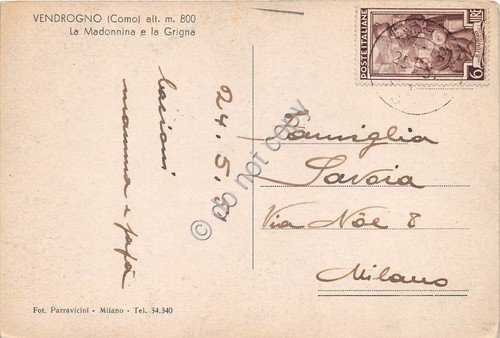 VENDROGNO (Como) alt. m. 800
La Madonnina e la Grigna
POSTE ITALIANE
6
24.5.
bacioni
mamma e papà
Famiglia
Savoia
Via Nöe 8
Milano
Fot. Parravicini - Milano - Tel. 34.340
do not copy